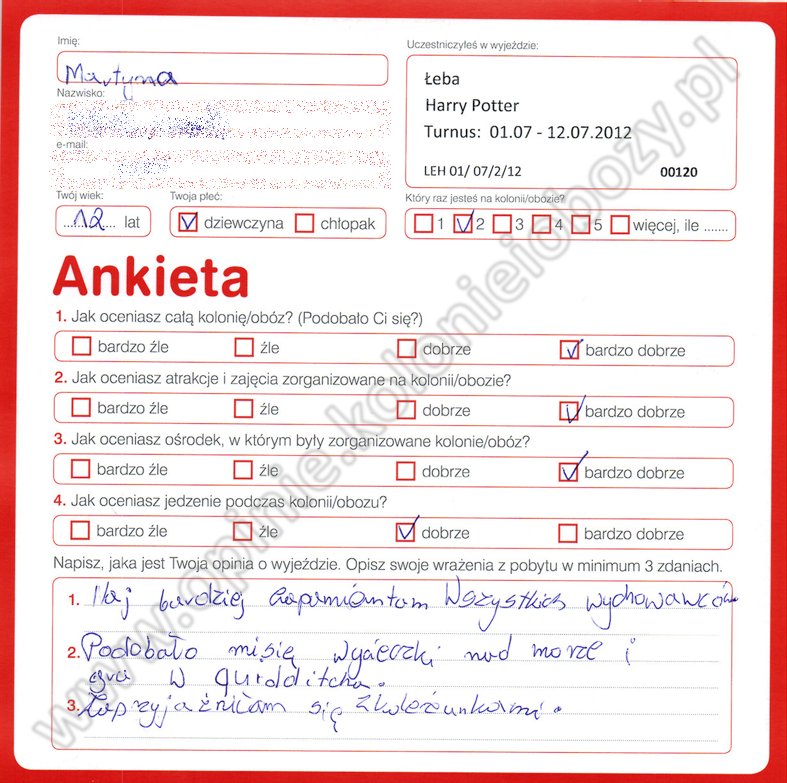 Imię:
Martyna
Nazwisko:
e-mail:
Uczestniczyłeś w wyjeździe:
Łeba
Harry Potter
Turnus: 01.07 - 12.07.2012
LEH 01/ 07/2/12 00120
Twój wiek:
12 lat
Twoja płeć:
dziewczyna chłopak
Który raz jesteś na kolonii/obozie?
1 2 3 4 5 więcej, ile .......
Ankieta
1. Jak oceniasz całą kolonię/obóz? (Podobało Ci się?)
bardzo źle źle dobrze bardzo dobrze
2. Jak oceniasz atrakcje i zajęcia zorganizowane na kolonii/obozie?
bardzo źle źle dobrze bardzo dobrze
3. Jak oceniasz ośrodek, w którym były zorganizowane kolonie/obóz?
bardzo źle źle dobrze bardzo dobrze
4. Jak oceniasz jedzenie podczas kolonii/obozu?
bardzo źle źle dobrze bardzo dobrze
Napisz, jaka jest Twoja opinia o wyjeździe. Opisz swoje wrażenia z pobytu w minimum 3 zdaniach.
1. Naj bardziej zapamiętam Wszystkich wychowawców
2. Podobało mi się wycieczki nad morze i
gra w quidditcha.
3. Zaprzyjaźniłam się z koleżankami.
www.opinie.kolonieiobozy.pl